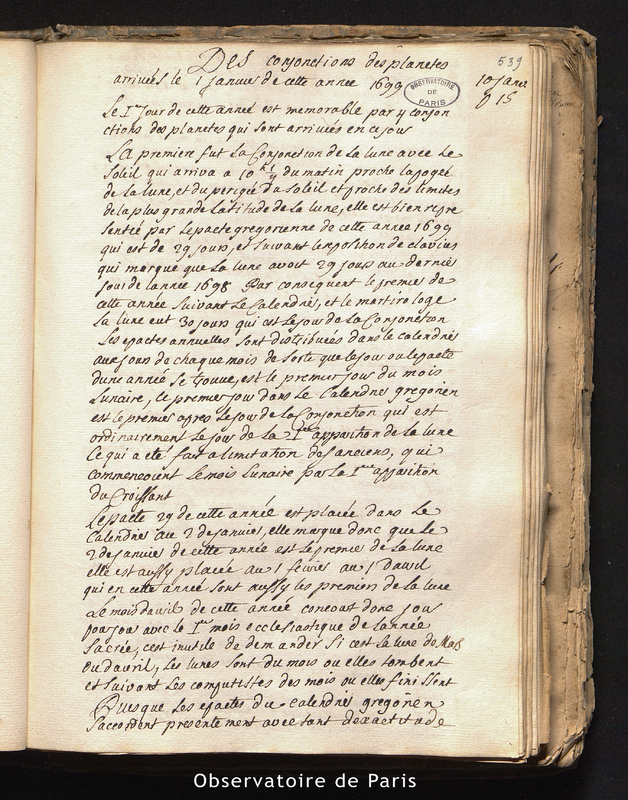 DES conjonctions des planetes
arrivées le 1 Janvier de cette annee 1699
539
10 Janv
OBSERVATOIRE
DE
PARIS
15
Le 1er Jour de cette année est memorable par 4 conjon
ctions des planetes qui sont arrivées en ce jour
La premiere fut la Conjonction de la lune avec le
Soleil qui arriva a 10 h 1/4 du matin proche l'apogée
de la lune, et du perigée du soleil et proche des limites
de la plus grande latitude de la lune, elle est bien repre
sentée par l'epacte gregorienne de cette année 1699
qui est de 29 jours, et suivant l'exposition de clavius
qui marque que la lune avoit 29 jours au dernier
jour de l'année 1698 Par consequent le premier de
cette année suivant le Calendrier, et le martirologe
la lune eut 30 jours qui est le jour de la Conjonction
Les epactes annuelles sont distribuées dans le calendrier
aux jours de chaque mois de sorte que le jour ou l'epacte
d'une année se trouve, est le premier jour du mois
Lunaire, le premier jour dans le Calendrier gregorien
est le premier apres le jour de la Conjonction qui est
ordinairement le jour de la 1ere apparition de la lune
ce qui a eté fait a l'imitation des anciens, qui
commencoient le mois Lunaire par la 1ere apparition
du Croissant
L'epacte 29 de cette année est placée dans le
Calendrier au 2 de janvier, elle marque donc que le
2 de janvier de cette année est le premier de la lune
elle est aussy placée au 1 fevrier au 1 d'avril
qui en cette année sont aussy les premiers de la lune
Le mois d'avril de cette année concourt donc jour
pour jour avec le 1er mois ecclesiastique de l'année
sacrée, c'est inutile de demander si c'est la lune de Mars
ou d'avril, les lunes sont du mois ou elles tombent
et suivant les computistes des mois ou elles finissent
Puisque les epactes du calendrier gregorien
s'accordent presentement avec tant d'exactitude
Observatoire de Paris